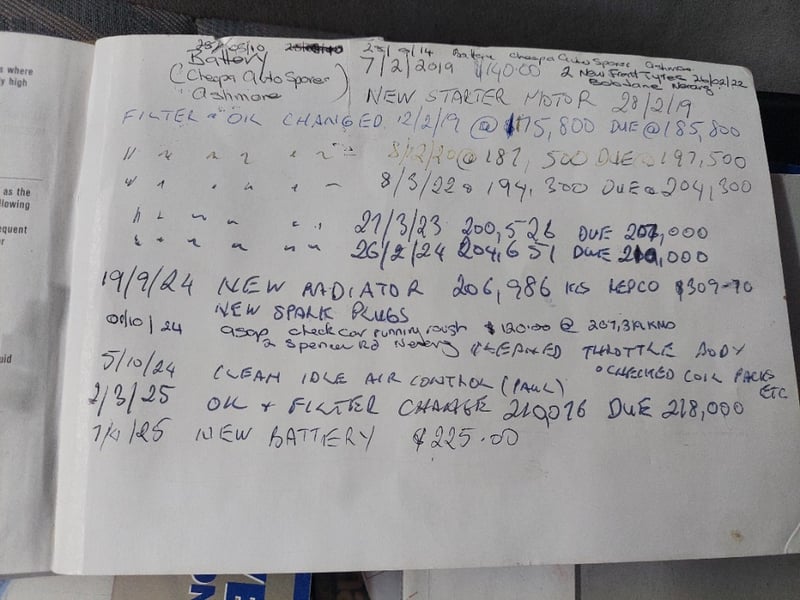 s where
y high
as the
llowing
equent
r
uid
25/05/10 23/9/14 Battery cheepa Auto Sparer Ashmore
Battery 7/2/2019 $140.00 2 New Front Tyres 26/02/22
(Cheepa Auto Sparer Ashmore) Bob Jane Nerang
NEW STARTER MOTOR 28/2/19
FILTER + OIL CHANGED 12/2/19 @ 175,800 DUE @ 185,800
" " " " " 8/12/20 @ 187,500 DUE @ 197,500
" " " " " 8/3/22 @ 194,300 DUE @ 204,300
" " " " " 27/3/23 200,526 DUE 207,000
" " " " " 26/2/24 204,651 DUE 210,000
19/9/24 NEW RADIATOR 206,986 KLS REPCO $309-70
NEW SPARK PLUGS
01/10/24 asap check car running rough $120.00 @ 207,319 KMS
2 Spencer Rd Nerang CLEANED THROTTLE BODY
5/10/24 CLEAN IDLE AIR CONTROL (PAUL) ° CHECKED COIL PACKS ETC
2/3/25 OIL + FILTER CHANGE 210,076 DUE 218,000
25 NEW BATTERY $225.00
VE
ON